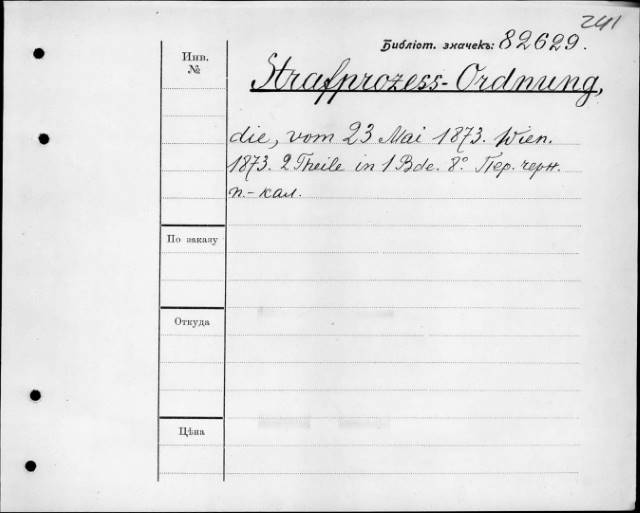 241
Библіот. значекъ: 82629.
Инв.
№
Strafprozess-Ordnung,
die, vom 23 Mai 1873. Wien.
1873. 2 Theile in 1 Bde. 8° Пер. черн.
п.-кал.
По заказу
Откуда
Цѣна